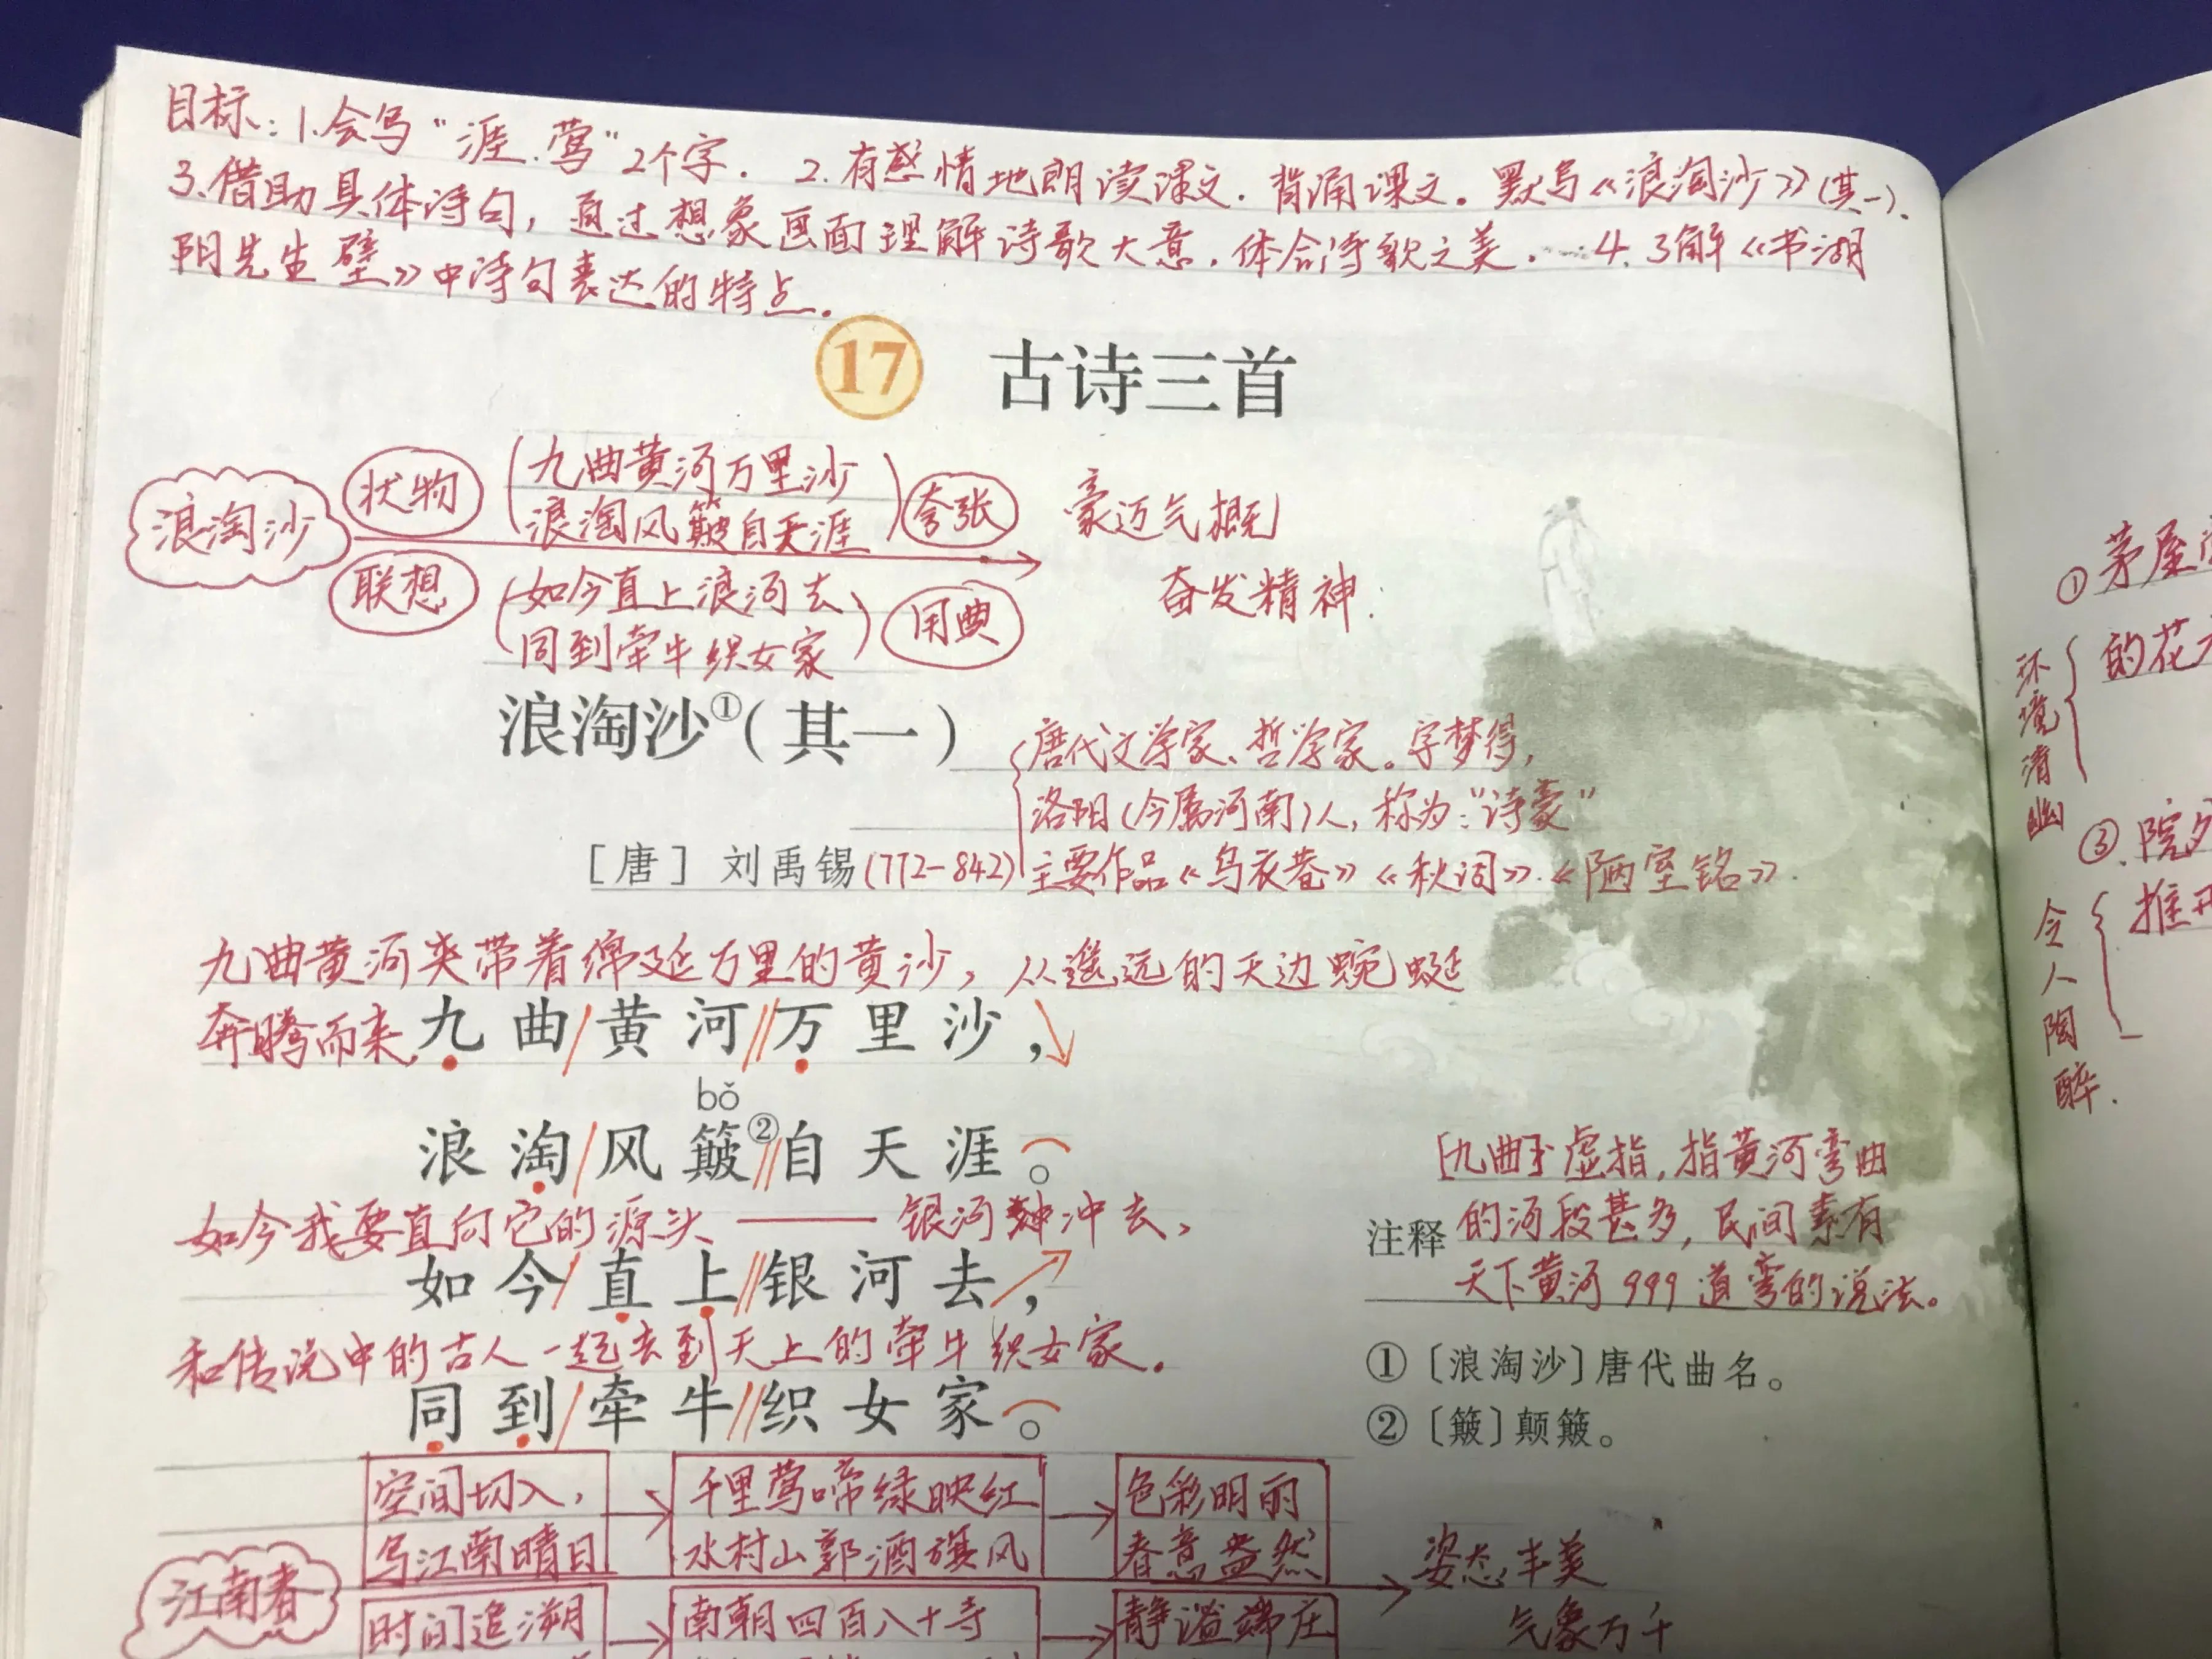 目标：1.会写“涯.莺”2个字. 2.有感情地朗读课文.背诵课文。默写《浪淘沙》(其一).
3.借助具体诗句，通过想象画面理解诗歌大意.体会诗歌之美. 4.了解《书湖
阴先生壁》中诗句表达的特点.
17 古诗三首
浪淘沙
状物
九曲黄河万里沙
浪淘风簸自天涯
夸张
联想
如今直上浪河去
同到牵牛织女家
用典
豪迈气概
奋发精神.
浪淘沙①(其一)
唐代文学家、哲学家。字梦得,
洛阳(今属河南)人, 称为:“诗豪”
[唐] 刘禹锡(772-842) 主要作品《乌衣巷》《秋词》.《陋室铭》.
九曲黄河夹带着绵延万里的黄沙，从遥远的天边蜿蜒
奔腾而来.
九曲/黄河//万里沙，
bǒ
浪淘/风簸②//自天涯。
如今我要直向它的源头——银河冲去、
如今/直上//银河去，
和传说中的古人一起去到天上的牵牛织女家.
同到/牵牛//织女家。
注释
[九曲] 虚指, 指黄河弯曲
的河段甚多, 民间素有
天下黄河999道弯的说法。
①〔浪淘沙〕唐代曲名。
②〔簸〕颠簸。
江南春
空间切入,
写江南晴日
千里莺啼绿映红
水村山郭酒旗风
色彩明丽
春意盎然
时间追溯
南朝四百八十寺
静谧端庄
姿态丰美
气象万千
①茅屋
的花
环境清幽
③.院
推开
令人陶醉.